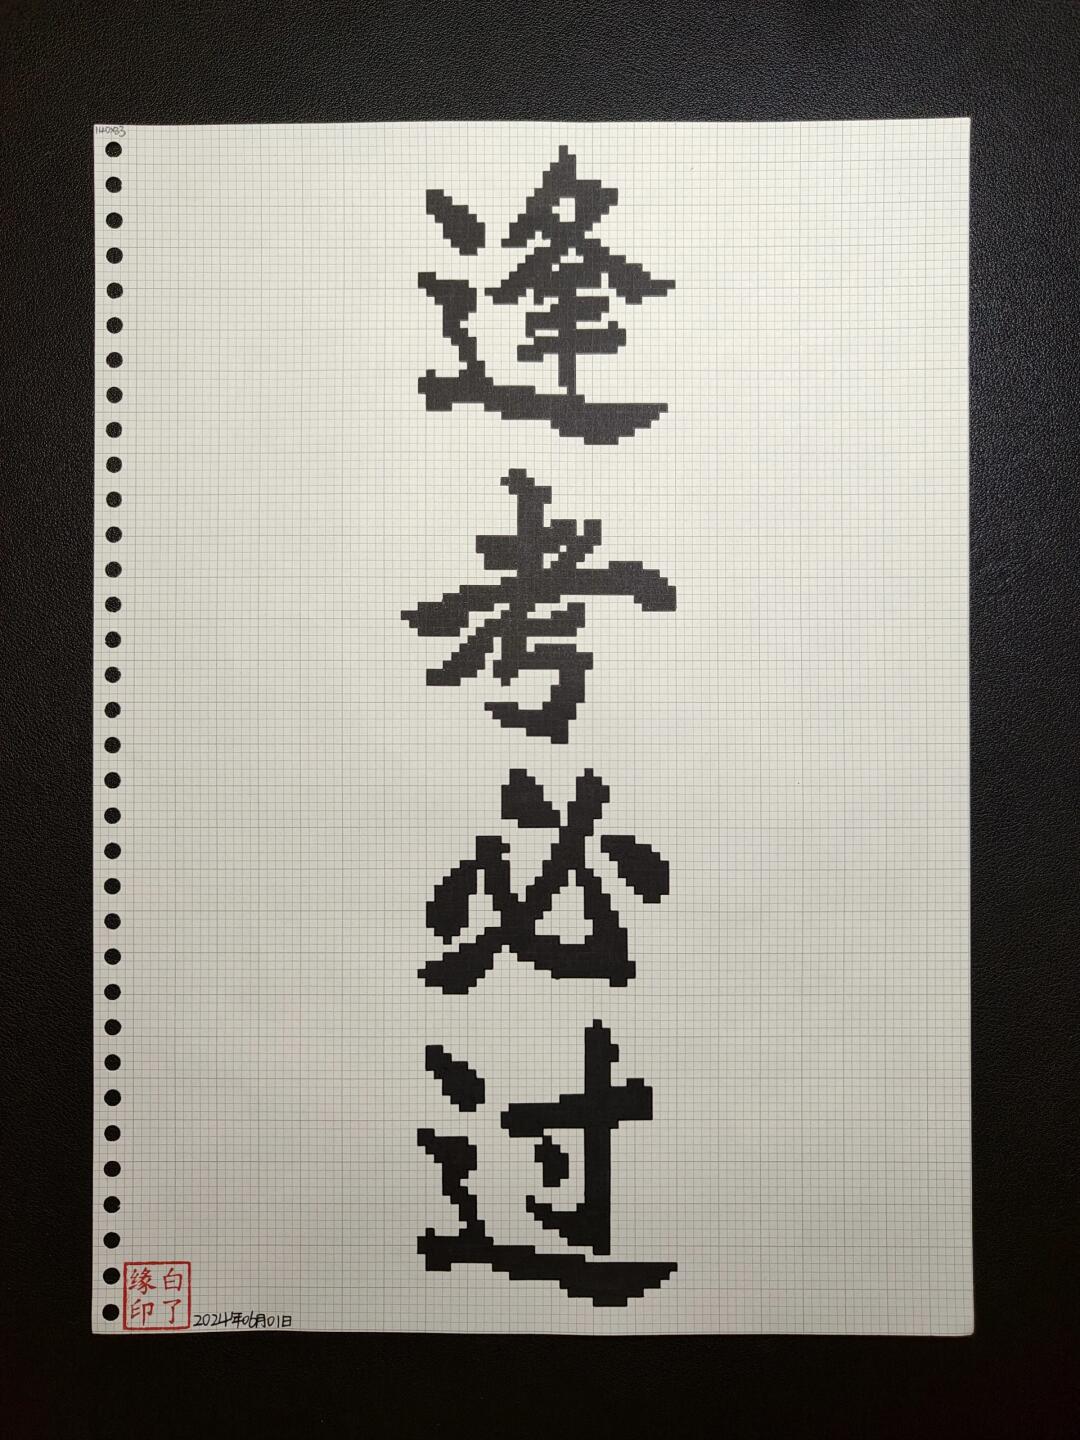 140×83
逢考必过
白了
缘印
2024年06月01日